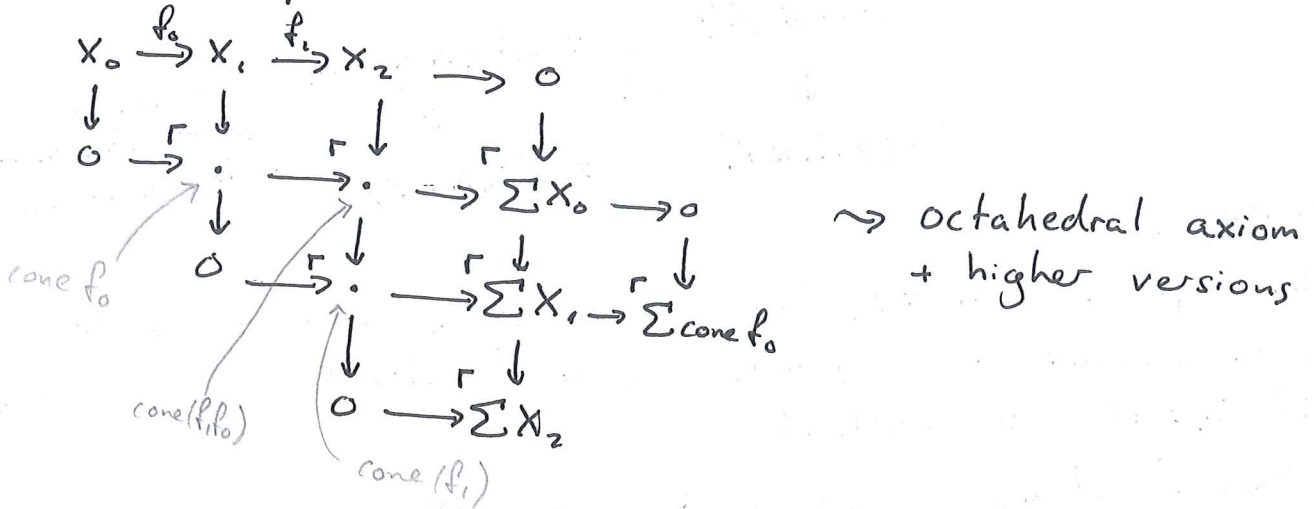 X₀ →f₀ X₁ →f₁ X₂ → 0
↓ ↓ ↓ ↓
0 → ┌ · → ┌ · → ┌ ΣX₀ → 0
↓ ↓ ↓ ↓
0 → ┌ · → ┌ ΣX₁ → ┌ Σcone f₀
↓ ↓
0 → ┌ ΣX₂
cone f₀
cone(f₁f₀)
cone(f₁)
⇝ octahedral axiom
+ higher versions